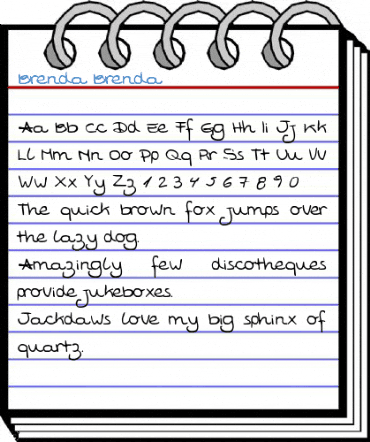 Brenda Brenda
Aa Bb Cc Dd Ee Ff Gg Hh Ii Jj Kk
Ll Mm Nn Oo Pp Qq Rr Ss Tt Uu Vv
Ww Xx Yy Zz 1 2 3 4 5 6 7 8 9 0
The quick brown fox jumps over
the lazy dog.
Amazingly few discotheques
provide jukeboxes.
Jackdaws love my big sphinx of
quartz.